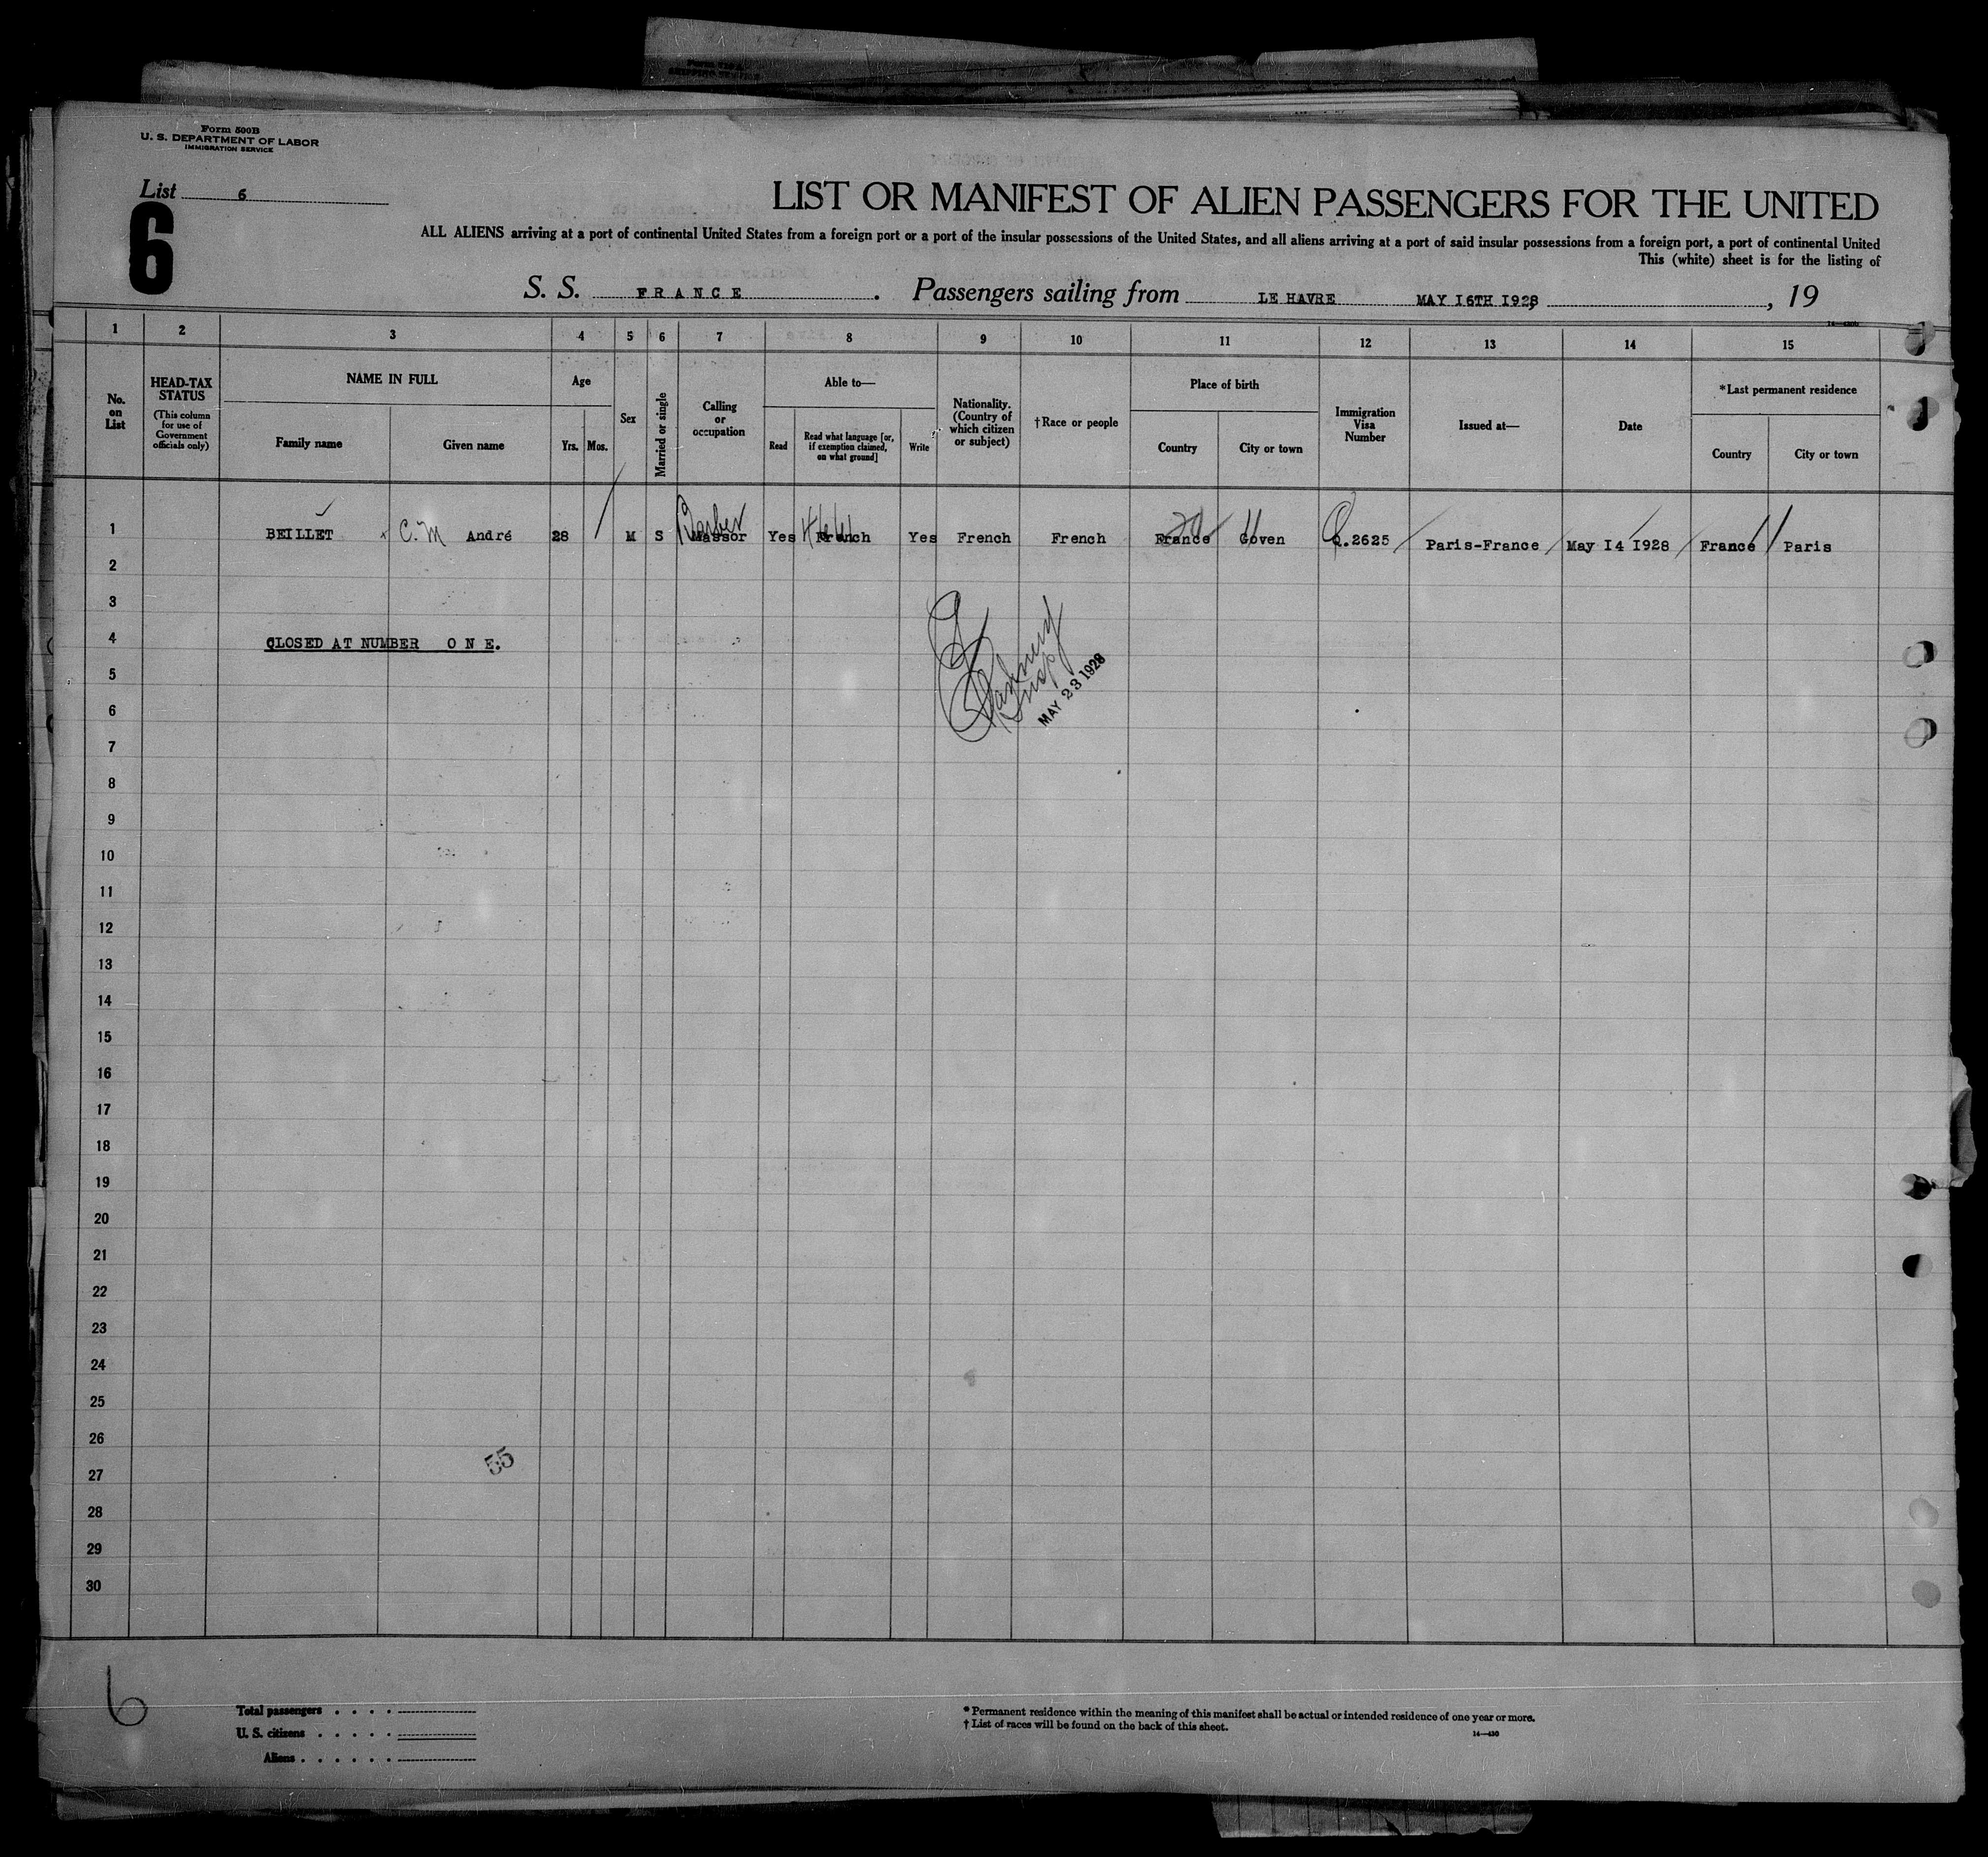 Form 500B
U. S. DEPARTMENT OF LABOR
IMMIGRATION SERVICE
List 6
6
LIST OR MANIFEST OF ALIEN PASSENGERS FOR THE UNITED
ALL ALIENS arriving at a port of continental United States from a foreign port or a port of the insular possessions of the United States, and all aliens arriving at a port of said insular possessions from a foreign port, a port of continental United
This (white) sheet is for the listing of
S. S. FRANCE. Passengers sailing from LE HAVRE MAY I6TH I928, 19
1 2 3 4 5 6 7 8 9 10 11 12 13 14 15
No. on List
HEAD-TAX STATUS
(This column for use of Government officials only)
NAME IN FULL
Family name Given name
Age
Yrs. Mos.
Sex
Married or single
Calling or occupation
Able to—
Read
Read what language [or, if exemption claimed, on what ground]
Write
Nationality. (Country of which citizen or subject)
†Race or people
Place of birth
Country City or town
Immigration Visa Number
Issued at—
Date
*Last permanent residence
Country City or town
1 BEILLET C. M André 28 M S Barber Massor Yes French Yes French French France Goven Q.2625 Paris-France May I4 I928 France Paris
2
3
4 CLOSED AT NUMBER O N E.
5
MAY 23 1928
6
7
8
9
10
11
12
13
14
15
16
17
18
19
20
21
22
23
24
25
26
55
27
28
29
30
6
Total passengers . . . .
U. S. citizens . . . . .
Aliens . . . . . .
* Permanent residence within the meaning of this manifest shall be actual or intended residence of one year or more.
† List of races will be found on the back of this sheet.
14—430